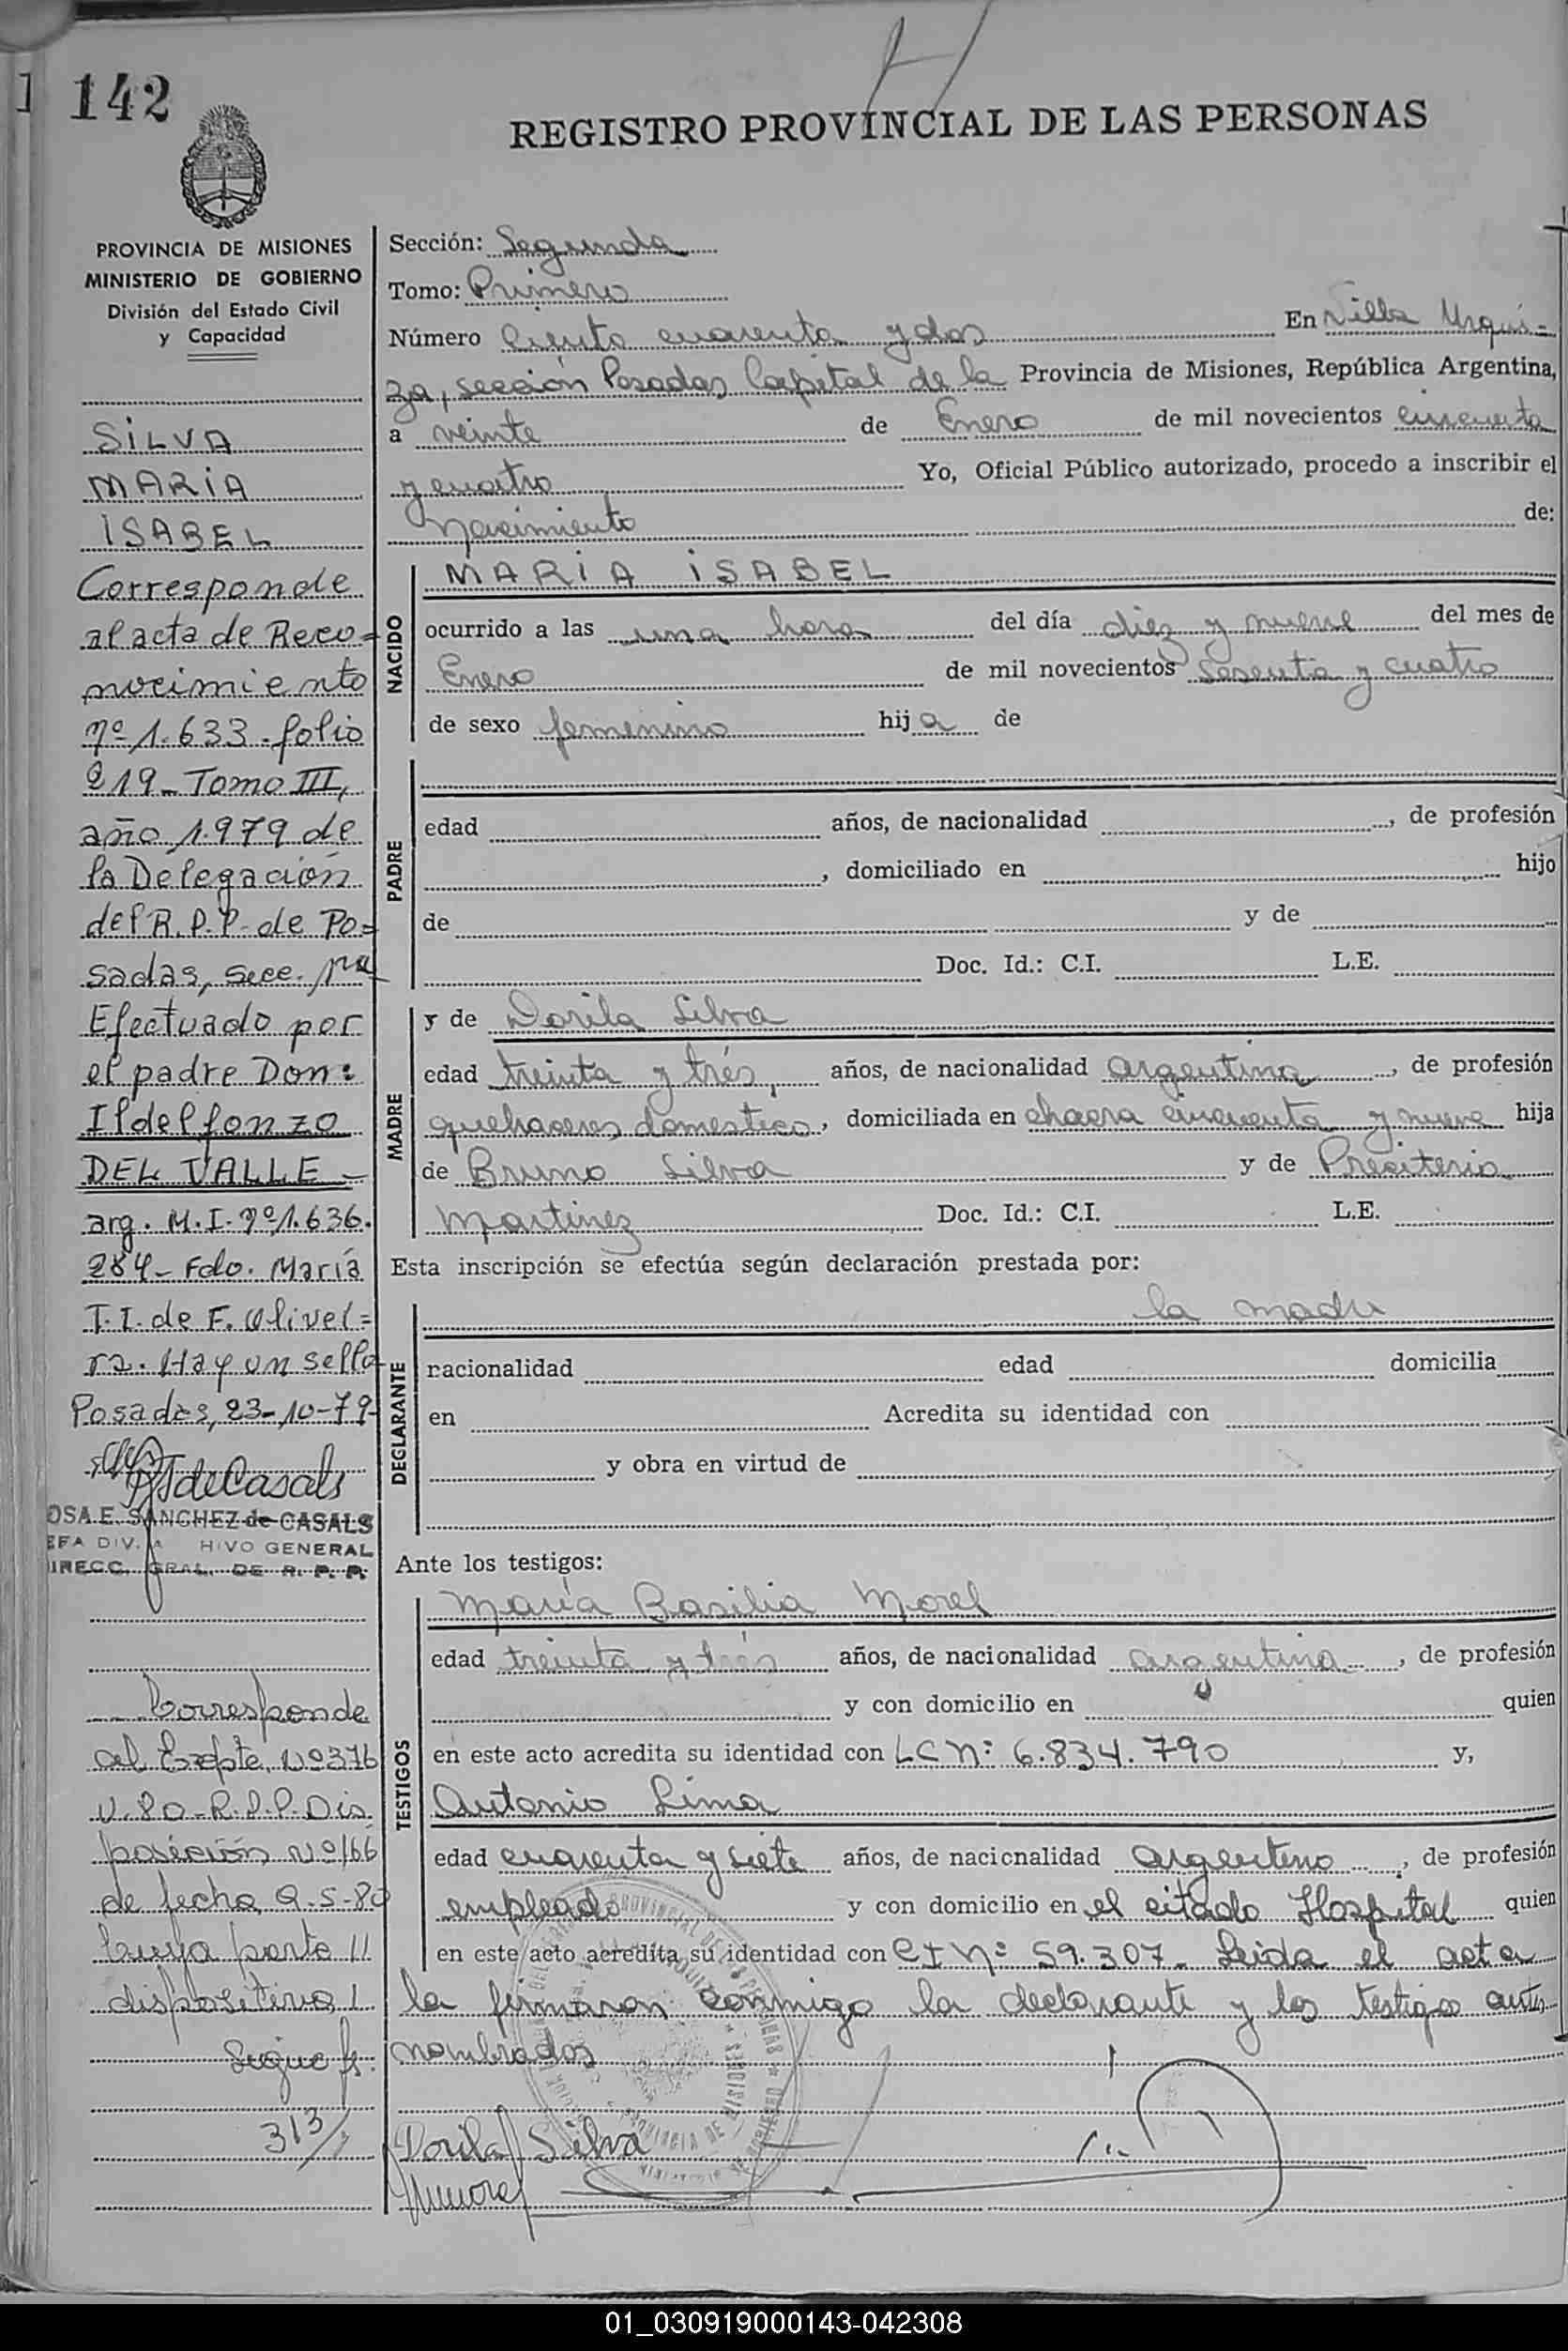 142
REGISTRO PROVINCIAL DE LAS PERSONAS
PROVINCIA DE MISIONES
MINISTERIO DE GOBIERNO
División del Estado Civil
y Capacidad
SILVA
MARIA
ISABEL
Corresponde
al acta de Reco=
nocimiento
nº 1.633. folio
219 - Tomo III,
año 1.979 de
la Delegación
del R.P.P. de Po=
sadas, secc.
Efectuado por
el padre Don:
Ildelfonzo
DEL VALLE -
arg. M.I. nº 1.636.
284 - Fdo. María
T.I. de F. Olivei=
ra. Hay un sello
Posadas, 23-10-79-
deCasals
OSA E. SANCHEZ de CASALS
EFA DIV. A HIVO GENERAL
IRECC. GRAL. DE R. P. P.
Corresponde
al Expte. Nº 376
V-80-R.P.P. Dis
posición Nº 166
de fecha 9-5-80
Cuya parte //
dispositiva /
Sigue fs.
313/
Sección: Segunda
Tomo: Primero
Número Ciento cuarenta y dos En Villa Urqui-
za, sección Posadas Capital de la Provincia de Misiones, República Argentina,
a veinte de Enero de mil novecientos cincuenta
y cuatro Yo, Oficial Público autorizado, procedo a inscribir el
Nacimiento de:
NACIDO
MARIA ISABEL
ocurrido a las una hora del día diez y nueve del mes de
Enero de mil novecientos sesenta y cuatro
de sexo femenino hija de
PADRE
edad años, de nacionalidad , de profesión
, domiciliado en hijo
de y de
Doc. Id.: C.I. L.E.
MADRE
y de Dorila Silva
edad treinta y trés, años, de nacionalidad argentina , de profesión
quehaceres domestico, domiciliada en chacra cincuenta y nueve hija
de Bruno Silva y de Presiteria
Martinez Doc. Id.: C.I. L.E.
Esta inscripción se efectúa según declaración prestada por:
DECLARANTE
la madre
nacionalidad edad domicilia
en Acredita su identidad con
y obra en virtud de
Ante los testigos:
TESTIGOS
María Basilia Morel
edad treinta y trés años, de nacionalidad argentina , de profesión
y con domicilio en quien
en este acto acredita su identidad con LC Nº 6.834.790 y,
Antonio Lima
edad cuarenta y siete años, de nacionalidad argentino , de profesión
empleado y con domicilio en el citado Hospital quien
en este acto acredita su identidad con CI Nº 59.307. Leida el acta
la firmaron conmigo la declarante y los testigos antes
nombrados
Dorila Silva
01_030919000143-042308